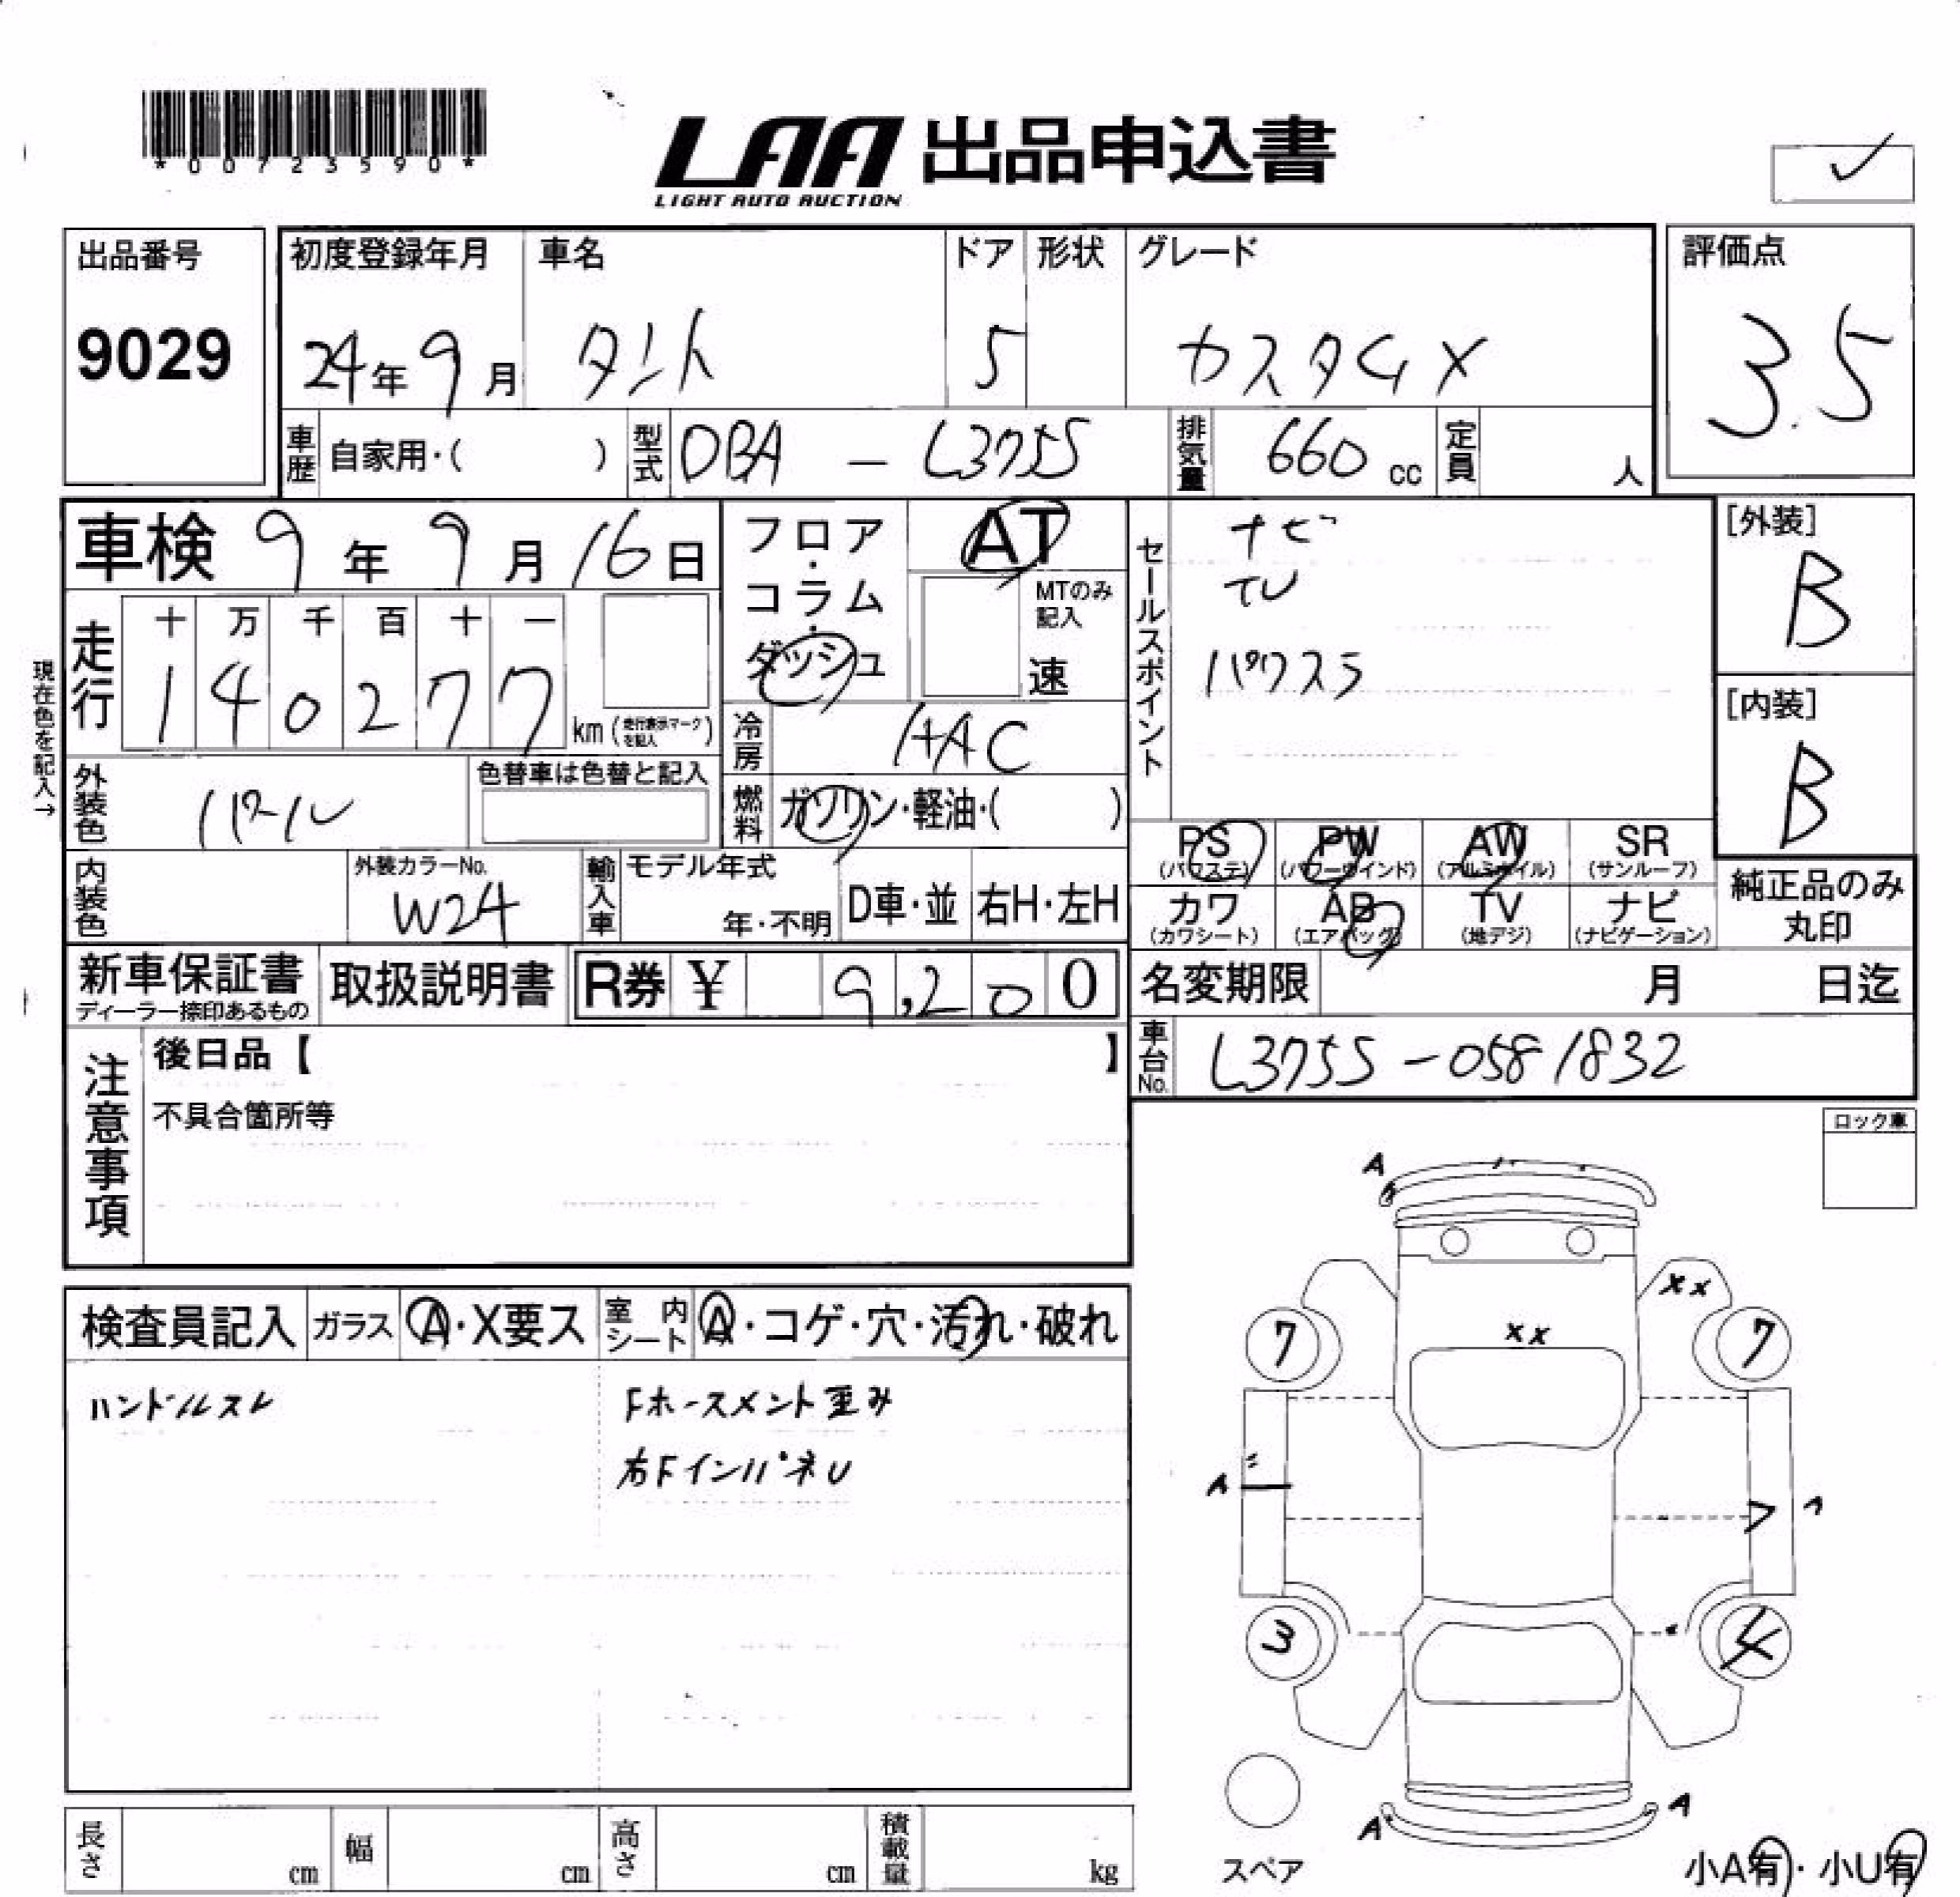 *00723590*
LAA 出品申込書
LIGHT AUTO AUCTION
✓
出品番号
9029
初度登録年月
24年 9月
車名
タント
ドア
5
形状
グレード
カスタムX
評価点
3.5
車歴
自家用・( )
型式
DBA — L375S
排気量
660 cc
定員
人
車検 9年 9月 16日
フロア・コラム・ダッシュ
AT
MTのみ記入
速
現在色を記入→
走行
十 万 千 百 十 一
1 4 0 2 7 7
km (走行表示マークを記入)
冷房
HAC
燃料
ガソリン・軽油・( )
セールスポイント
ナビ
TV
パワスラ
[外装]
B
[内装]
B
外装色
パール
色替車は色替と記入
内装色
外装カラーNo.
W24
輸入車
モデル年式
年・不明
D車・並
右H・左H
PS
(パワステ)
PW
(パワーウインド)
AW
(アルミホイル)
SR
(サンルーフ)
カワ
(カワシート)
AB
(エアバッグ)
TV
(地デジ)
ナビ
(ナビゲーション)
純正品のみ
丸印
新車保証書
ディーラー捺印あるもの
取扱説明書
R券 ¥ 9,200
名変期限 月 日迄
車台No.
L375S-0581832
注意事項
後日品【 】
不具合箇所等
ロック車
検査員記入
ガラス
A・X要ス
室内シート
A・コゲ・穴・汚れ・破れ
ハンドルスレ
Fホースメント歪み
右FインパネU
A
XX
XX
7
7
A
3
4
A
A
スペア
小A有・小U有
長さ cm
幅 cm
高さ cm
積載量 kg